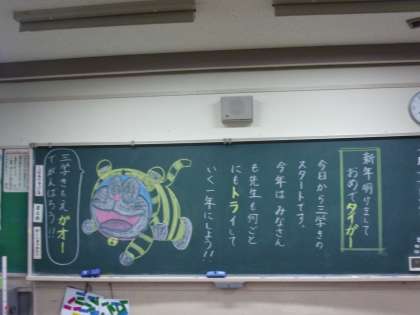 新年明けまして
おめでタイガー
今日から三学きの
スタートです。
今年は みなさん
も先生も何ごと
にもトライして
いく一年にしよう!!
三学きもえがオー
でがんばろう!!